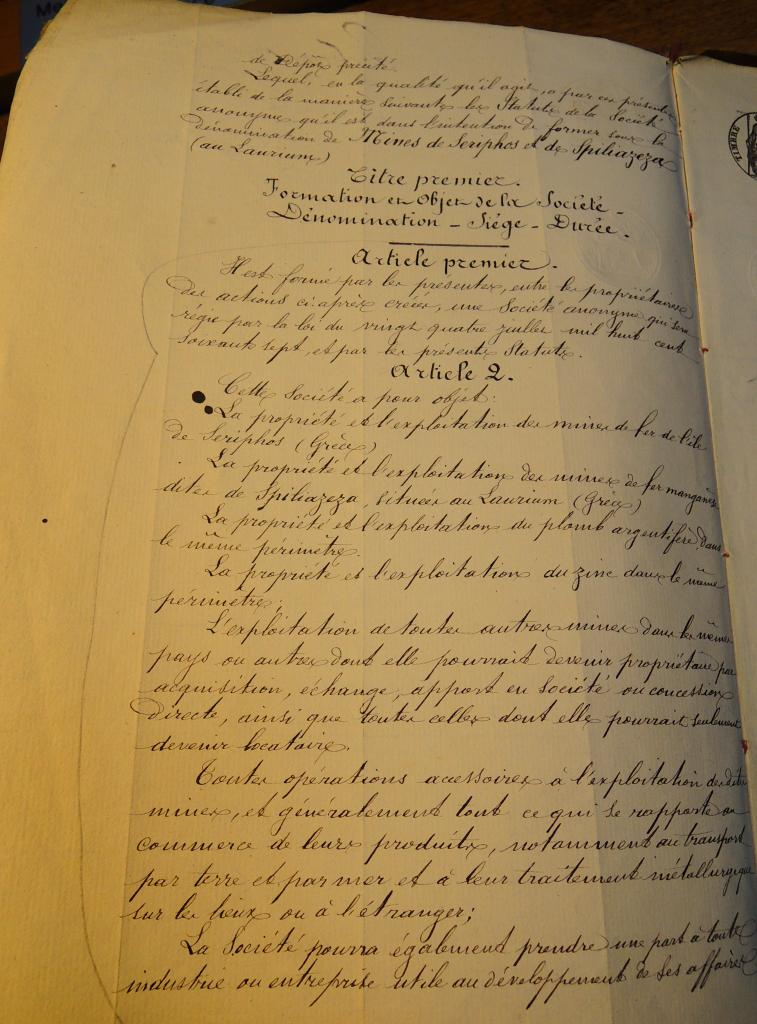 de Dépôt précité.
Lequel, en la qualité qu'il agit, a par ces présentes
établi de la manière suivante les Statuts de la Société
anonyme qu'il est dans l'intention de former sous la
dénomination de Mines de Seriphos et de Spiliazeza
(au Laurium)
Titre premier.
Formation et Objet de la Société -
Dénomination - Siége - Durée.
Article premier.
Il est formé par les présentes, entre les propriétaires
des actions ci-après créées, une Société anonyme qui sera
régie par la loi du vingt quatre juillet mil huit cent
soixant sept, et par les présents Statuts.
Article 2.
Cette Société a pour objet:
La propriété et l'exploitation des mines de fer de l'île
de Seriphos (Grèce)
La propriété et l'exploitation des mines de fer manganésé
dites de Spiliazeza, situées au Laurium (Grèce)
La propriété et l'exploitation du plomb argentifère dans
le même périmètre.
La propriété et l'exploitation du zinc dans le même
périmètre;
L'exploitation de toutes autres mines dans les mêmes
pays ou autres dont elle pourrait devenir propriétaire par
acquisition, échange, apport en Société ou concession
Directe, ainsi que toutes celles dont elle pourrait seulement
devenir locataire.
Toutes opérations accessoires à l'exploitation des dites
mines, et généralement tout ce qui se rapporte au
commerce de leurs produits, notamment au transport
par terre et par mer et à leur traitement métallurgique
sur les lieux ou à l'étranger;
La Société pourra également prendre une part à toute
industrie ou entreprise utile au développement de ses affaires
TIMBRE